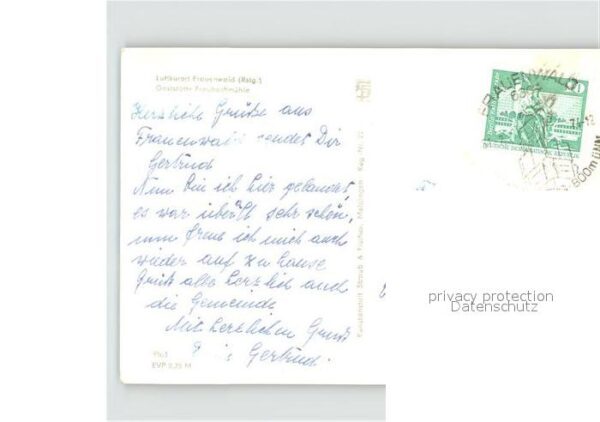 Luftkurort Frauenwald (Rstg.)
Gaststätte Fraubachmühle
Herzliche Grüße aus
Frauenwald sendet Dir
Gertrud
Nun bin ich hier gelandet,
es war überall sehr schön,
nun freue ich mich auch
wieder auf zu Hause
Grüß alle herzlich auch
die Gemeinde
Mit herzlichen Gruß
Gertrud
EVP 0,25 M
Kunstanstalt Straub & Fischer, Meiningen
FRAUENWALD
DEUTSCHE DEMOKRATISCHE REPUBLIK
800m üNN
privacy protection
Datenschutz